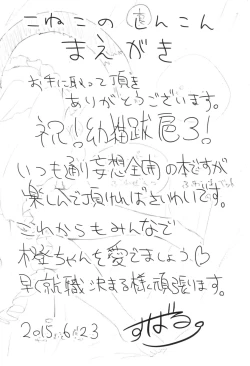 こねこの歪んこん
まえがき
お手に取って頂き
ありがとうございます。
祝!幼猫跋扈3!
いつも通り妄想全開の本ですが
楽しんで頂ければさいわいです。
これからもみんなで
橙ちゃんを愛でましょう
早く就職決まる様頑張ります。
2015.6.23
すばる。